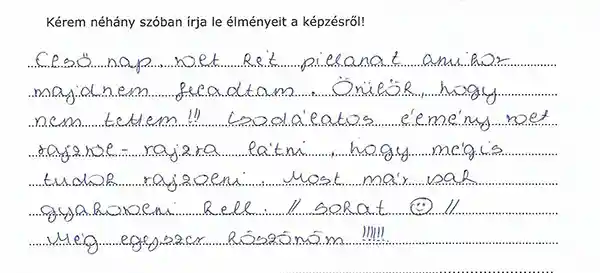 Kérem néhány szóban írja le élményeit a képzésről!
Első nap volt két pillanat amikor
majdnem feladtam. Örülök, hogy
nem tettem!!! Csodálatos élmény volt
rajzról - rajzra látni, hogy mégis
tudok rajzolni. Most már csak
gyakorolni kell. // sokat ☺ //
Még egyszer köszönöm !!!!!!